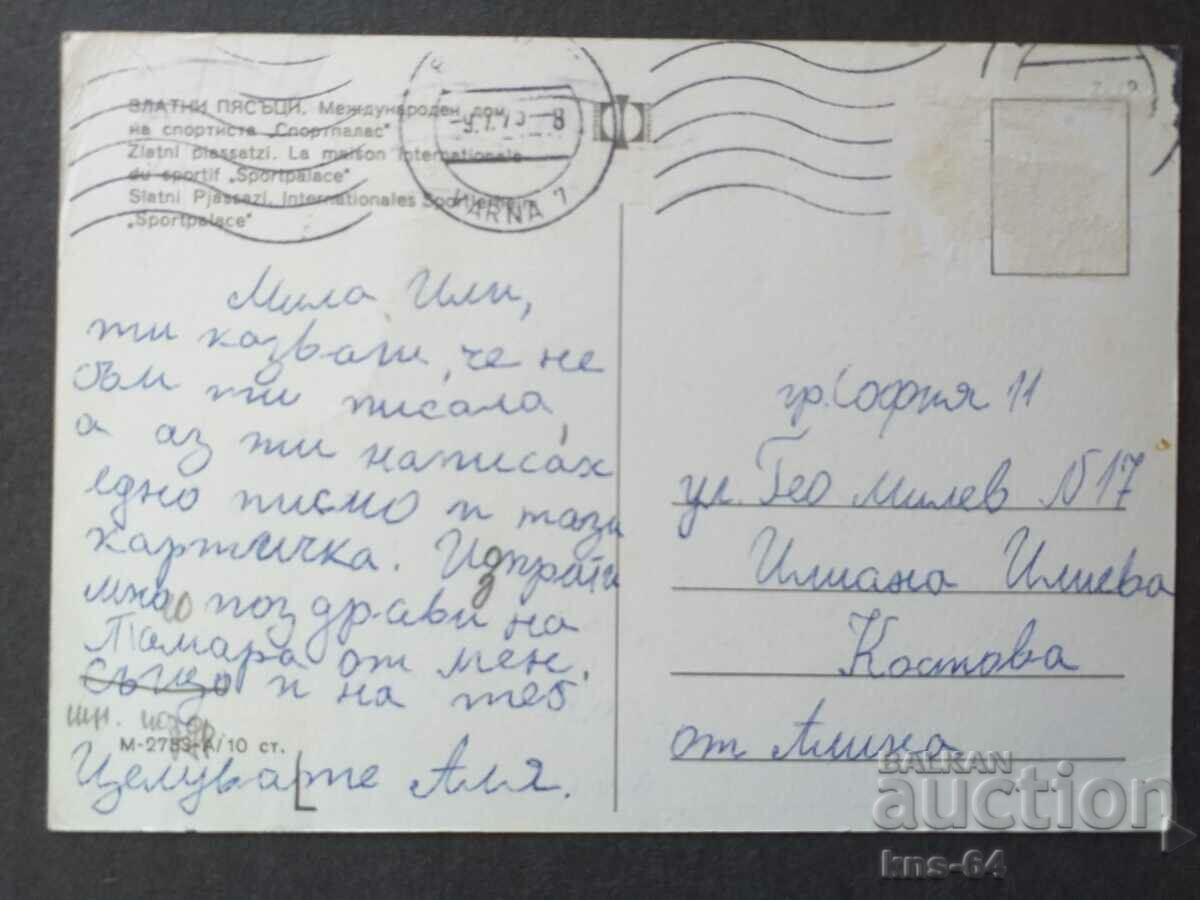 ЗЛАТНИ ПЯСЪЦИ. Международен дом
на спортиста „Спортпалас"
Zlatni piassatzi. La maison internationale
du sportif „Sportpalace"
Slatni Pjassazi. Internationales Sportlerheim
„Sportpalace"
VARNA 7
Мила Или,
ти казваш, че не
съм ти писала,
а аз ти написах
едно писмо и тази
картичка. Изпрати
много поздрави на
Тамара от мен.
също и на теб
мн. поздр.
М-2783-А/10 ст.
Целувам те Аля.
гр. София 11
ул. Гео Милев N17
Илиана Илиева
Костова
от Алина
BALKAN
auction
kns-64